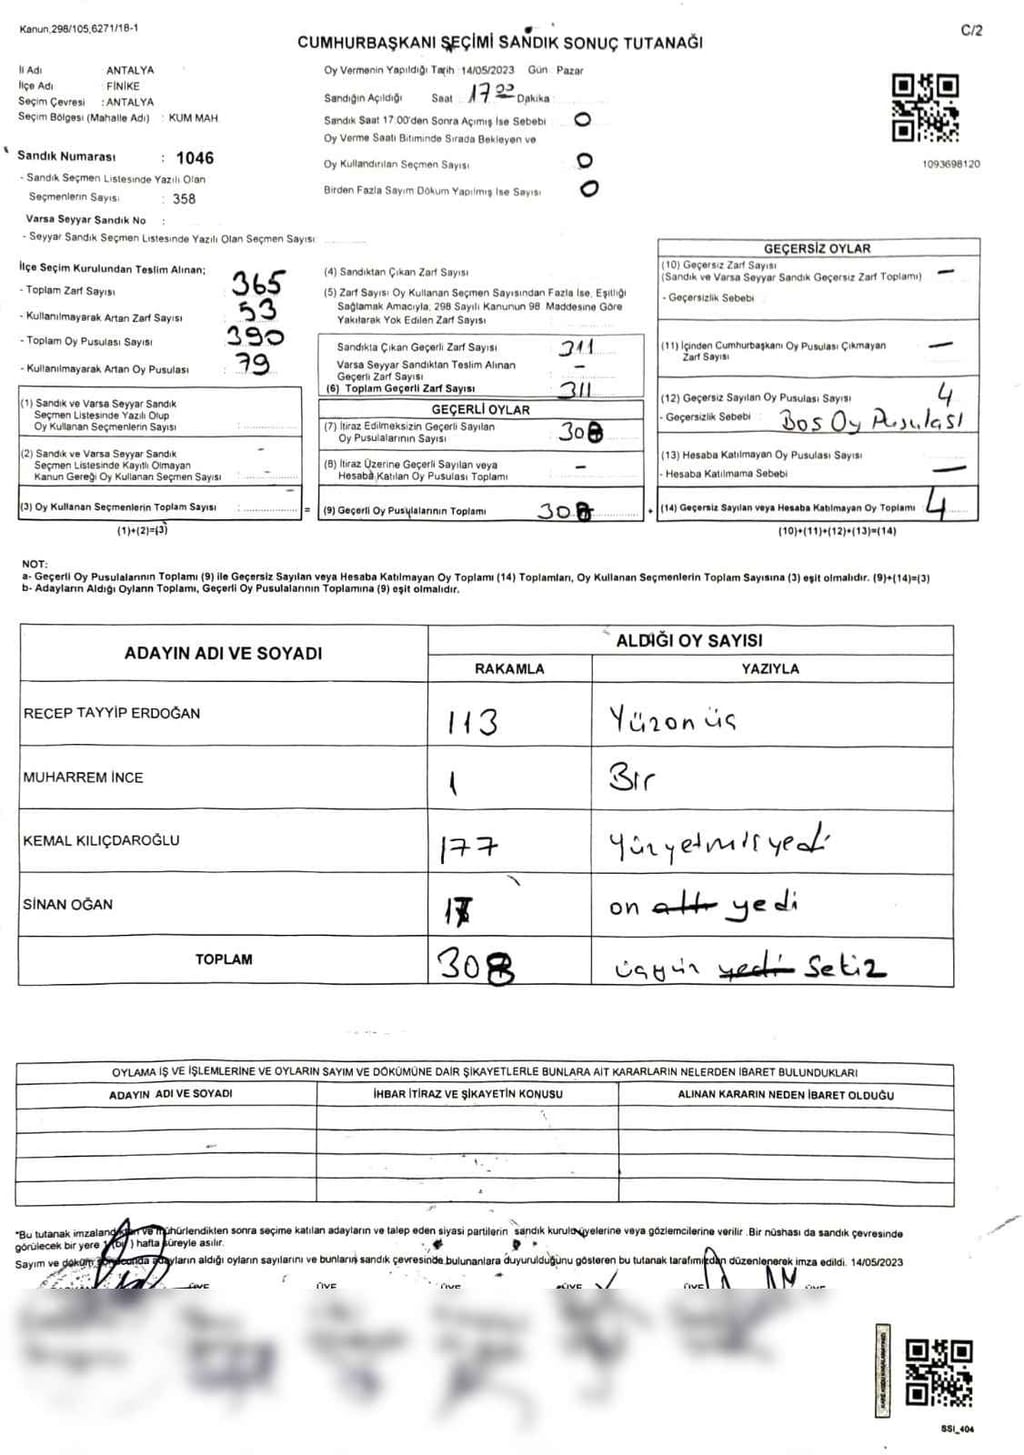 Kanun,298/105,6271/18-1
C/2
CUMHURBAŞKANI SEÇİMİ SANDIK SONUÇ TUTANAĞI
İl Adı ANTALYA
İlçe Adı : FİNİKE
Seçim Çevresi : ANTALYA
Seçim Bölgesi (Mahalle Adı) : KUM MAH
Sandık Numarası : 1046
- Sandık Seçmen Listesinde Yazılı Olan
Seçmenlerin Sayısı : 358
Varsa Seyyar Sandık No :
- Seyyar Sandık Seçmen Listesinde Yazılı Olan Seçmen Sayısı
Oy Vermenin Yapıldığı Tarih 14/05/2023 Gün Pazar
Sandığın Açıldığı Saat 17 00 Dakika
Sandık Saat 17 00'den Sonra Açımış İse Sebebi O
Oy Verme Saati Bitiminde Sırada Bekleyen ve
Oy Kullandırılan Seçmen Sayısı O
Birden Fazla Sayım Döküm Yapılmış İse Sayısı O
1093698120
İlçe Seçim Kurulundan Teslim Alınan;
- Toplam Zarf Sayısı 365
- Kullanılmayarak Artan Zarf Sayısı 53
- Toplam Oy Pusulası Sayısı 390
- Kullanılmayarak Artan Oy Pusulası 79
(1) Sandık ve Varsa Seyyar Sandık
Seçmen Listesinde Yazılı Olup
Oy Kullanan Seçmenlerin Sayısı :
(2) Sandık ve Varsa Seyyar Sandık -
Seçmen Listesinde Kayıtlı Olmayan
Kanun Gereği Oy Kullanan Seçmen Sayısı -
(3) Oy Kullanan Seçmenlerin Toplam Sayısı : - =
(1)+(2)=(3)
(4) Sandıktan Çıkan Zarf Sayısı
(5) Zarf Sayısı Oy Kullanan Seçmen Sayısından Fazla İse, Eşitliği
Sağlamak Amacıyla, 298 Sayılı Kanunun 98 Maddesine Göre
Yakılarak Yok Edilen Zarf Sayısı
Sandıkta Çıkan Geçerli Zarf Sayısı 311
Varsa Seyyar Sandıktan Teslim Alınan
Geçerli Zarf Sayısı -
(6) Toplam Geçerli Zarf Sayısı 311
GEÇERLİ OYLAR
(7) İtiraz Edilmeksizin Geçerli Sayılan
Oy Pusulalarının Sayısı 308
(8) İtiraz Üzerine Geçerli Sayılan veya
Hesaba Katılan Oy Pusulası Toplamı -
(9) Geçerli Oy Pusulalarının Toplamı 308 +
GEÇERSİZ OYLAR
(10) Geçersiz Zarf Sayısı
(Sandık ve Varsa Seyyar Sandık Geçersiz Zarf Toplamı) -
- Geçersizlik Sebebi
(11) İçinden Cumhurbaşkanı Oy Pusulası Çıkmayan
Zarf Sayısı -
(12) Geçersiz Sayılan Oy Pusulası Sayısı 4
- Geçersizlik Sebebi : Boş Oy Pusulası
(13) Hesaba Katılmayan Oy Pusulası Sayısı
- Hesaba Katılmama Sebebi -
(14) Geçersiz Sayılan veya Hesaba Katılmayan Oy Toplamı 4
(10)+(11)+(12)+(13)=(14)
NOT:
a- Geçerli Oy Pusulalarının Toplamı (9) ile Geçersiz Sayılan veya Hesaba Katılmayan Oy Toplamı (14) Toplamları, Oy Kullanan Seçmenlerin Toplam Sayısına (3) eşit olmalıdır. (9)+(14)=(3)
b- Adayların Aldığı Oyların Toplamı, Geçerli Oy Pusulalarının Toplamına (9) eşit olmalıdır.
ADAYIN ADI VE SOYADI
ALDIĞI OY SAYISI
RAKAMLA YAZIYLA
RECEP TAYYİP ERDOĞAN 113 Yüzonüç
MUHARREM İNCE 1 Bir
KEMAL KILIÇDAROĞLU 177 Yüzyetmişyedi
SİNAN OĞAN 17 on altı yedi
TOPLAM 308 üçyüz yedi Sekiz
OYLAMA İŞ VE İŞLEMLERİNE VE OYLARIN SAYIM VE DÖKÜMÜNE DAİR ŞİKAYETLERLE BUNLARA AİT KARARLARIN NELERDEN İBARET BULUNDUKLARI
ADAYIN ADI VE SOYADI İHBAR İTİRAZ VE ŞİKAYETİN KONUSU ALINAN KARARIN NEDEN İBARET OLDUĞU
*Bu tutanak ve mühürlendikten sonra seçime katılan adayların ve talep eden siyasi partilerin sandık kurulu üyelerine veya gözlemcilerine verilir. Bir nüshası da sandık çevresinde
görülecek bir yere 1 (bir) hafta süreyle asılır.
Sayım ve döküm adayların aldığı oyların sayılarını ve bunların sandık çevresinde bulunanlara duyurulduğunu gösteren bu tutanak tarafımızdan düzenlenerek imza edildi. 14/05/2023
ÜYE ÜYE ÜYE ÜYE ÜYE ÜYE
SSI_404